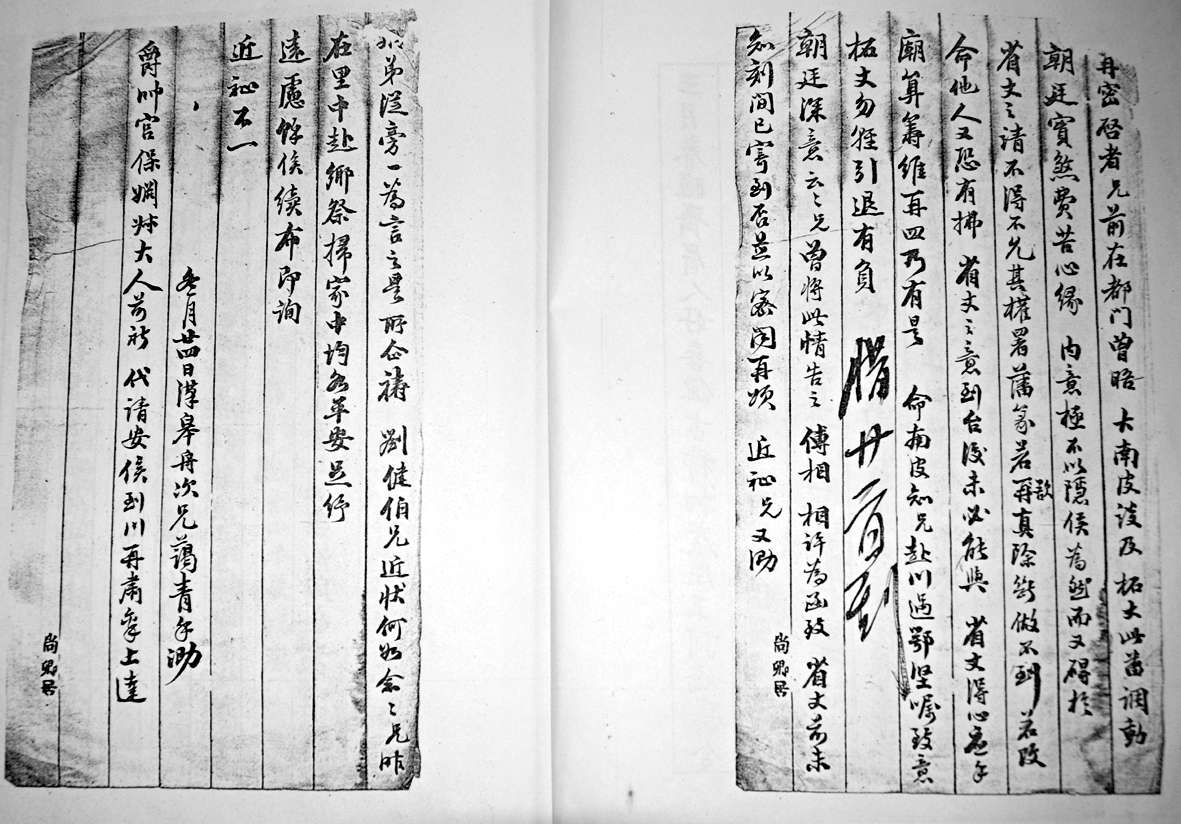 再密啓者兄前在都門曾晤 大南皮談及 柘丈此番調動
朝廷實煞費苦心緣 內意極不以隱侯為然而又礙於
省丈之請不得不允其權署藩篆若再真除斷做不到 若改
欲
命他人又恐有拂 省丈之意到台後未必能與 省丈得心應手
廟算籌維再四乃有是 命南皮知兄赴川過鄂堅囑致意
柘丈勿輕引退有負
朝廷深意云云兄曾將此情告之 傅相 相許為函致 省丈前未
知刻間已寄到否并以密聞再頌 近祉兄又泐
腊廿二日到
尚卿居
如弟從旁一為言之是所企禱 劉健伯兄近狀何如念念兄昨
在里中赴鄉祭掃家中均各平安足紓
遠慮餘俟續布即詢
近祉不一
冬月廿四日漢皋舟次兄藹青手泐
爵帥宮保姻叔大人前祈 代請安俟到川再肅稟上達
尚卿居